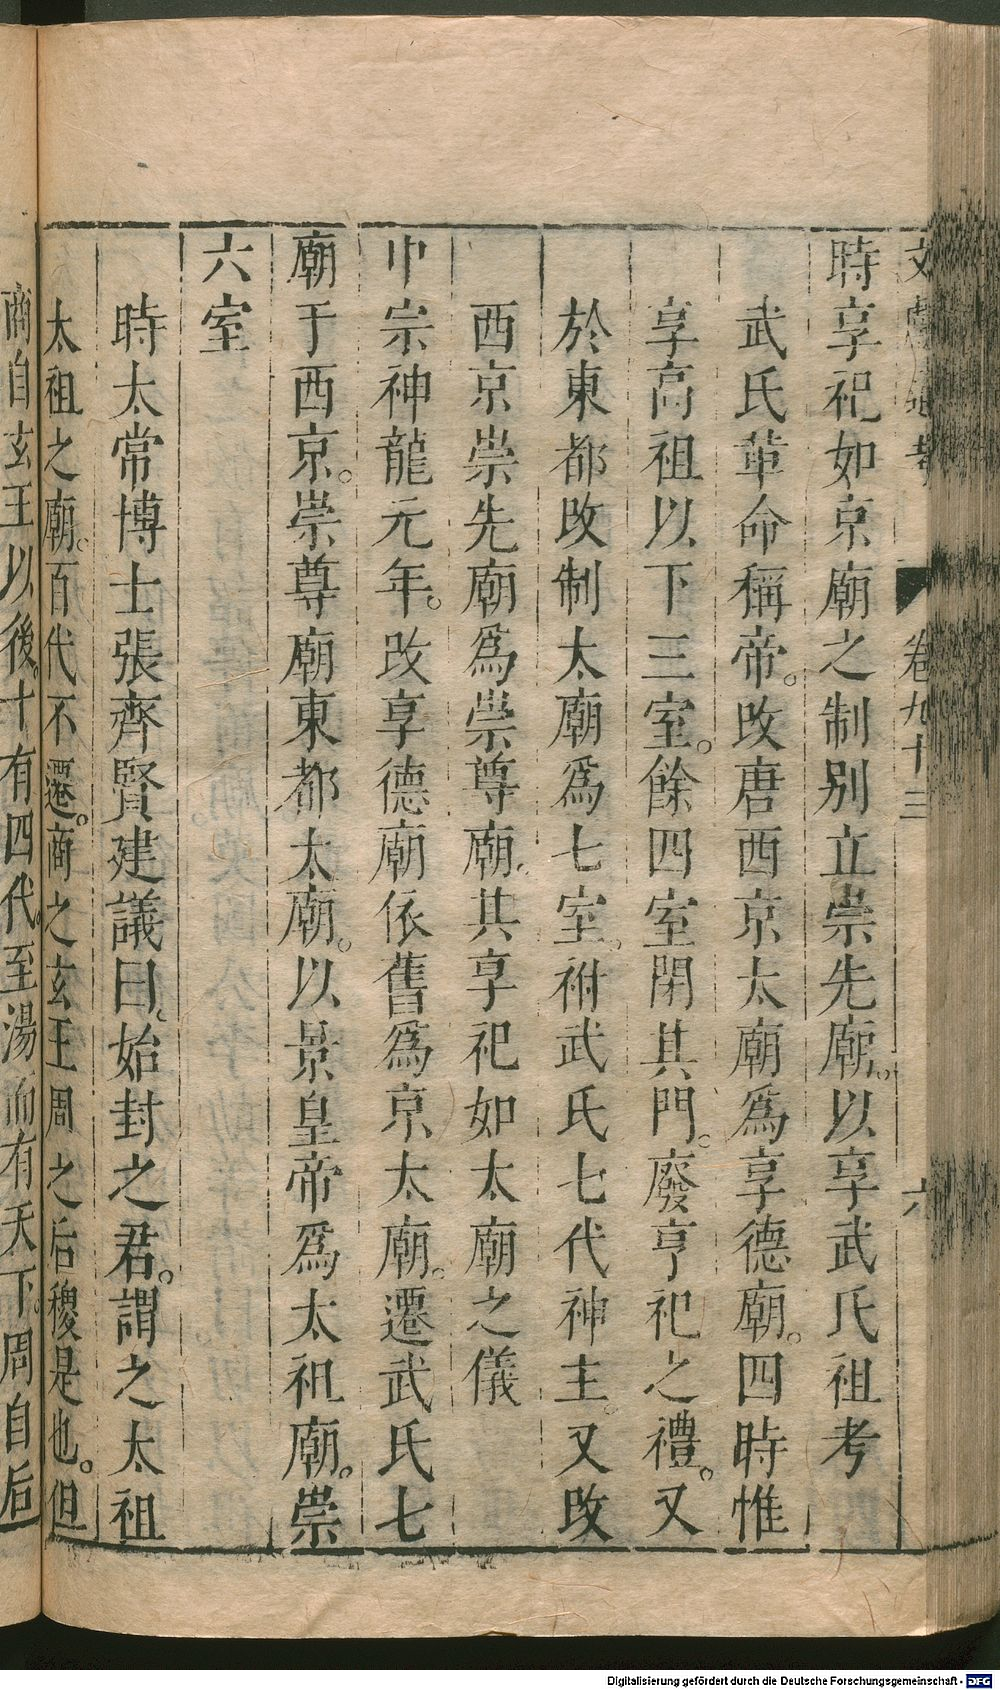 文獻通考 卷九十三 六
時享祀如京廟之制別立崇先廟。以享武氏祖考
武氏革命稱帝。改唐西京太廟爲享德廟。四時惟
享高祖以下三室。餘四室閉其門。廢亨祀之禮。又
於東都改制太廟爲七室。祔武氏七代神主。又改
西京崇先廟爲崇尊廟。其享祀如太廟之儀
中宗神龍元年。改享德廟依舊爲京太廟。遷武氏七
廟于西京。崇尊廟東都太廟。以景皇帝爲太祖廟。崇
六室
時太常博士張齊賢建議曰。始封之君。謂之太祖
太祖之廟。百代不遷。商之玄王周之后稷是也。但
商自玄王以後。十有四代。至湯而有天下。周自后
Digitalisierung gefördert durch die Deutsche Forschungsgemeinschaft - DFG